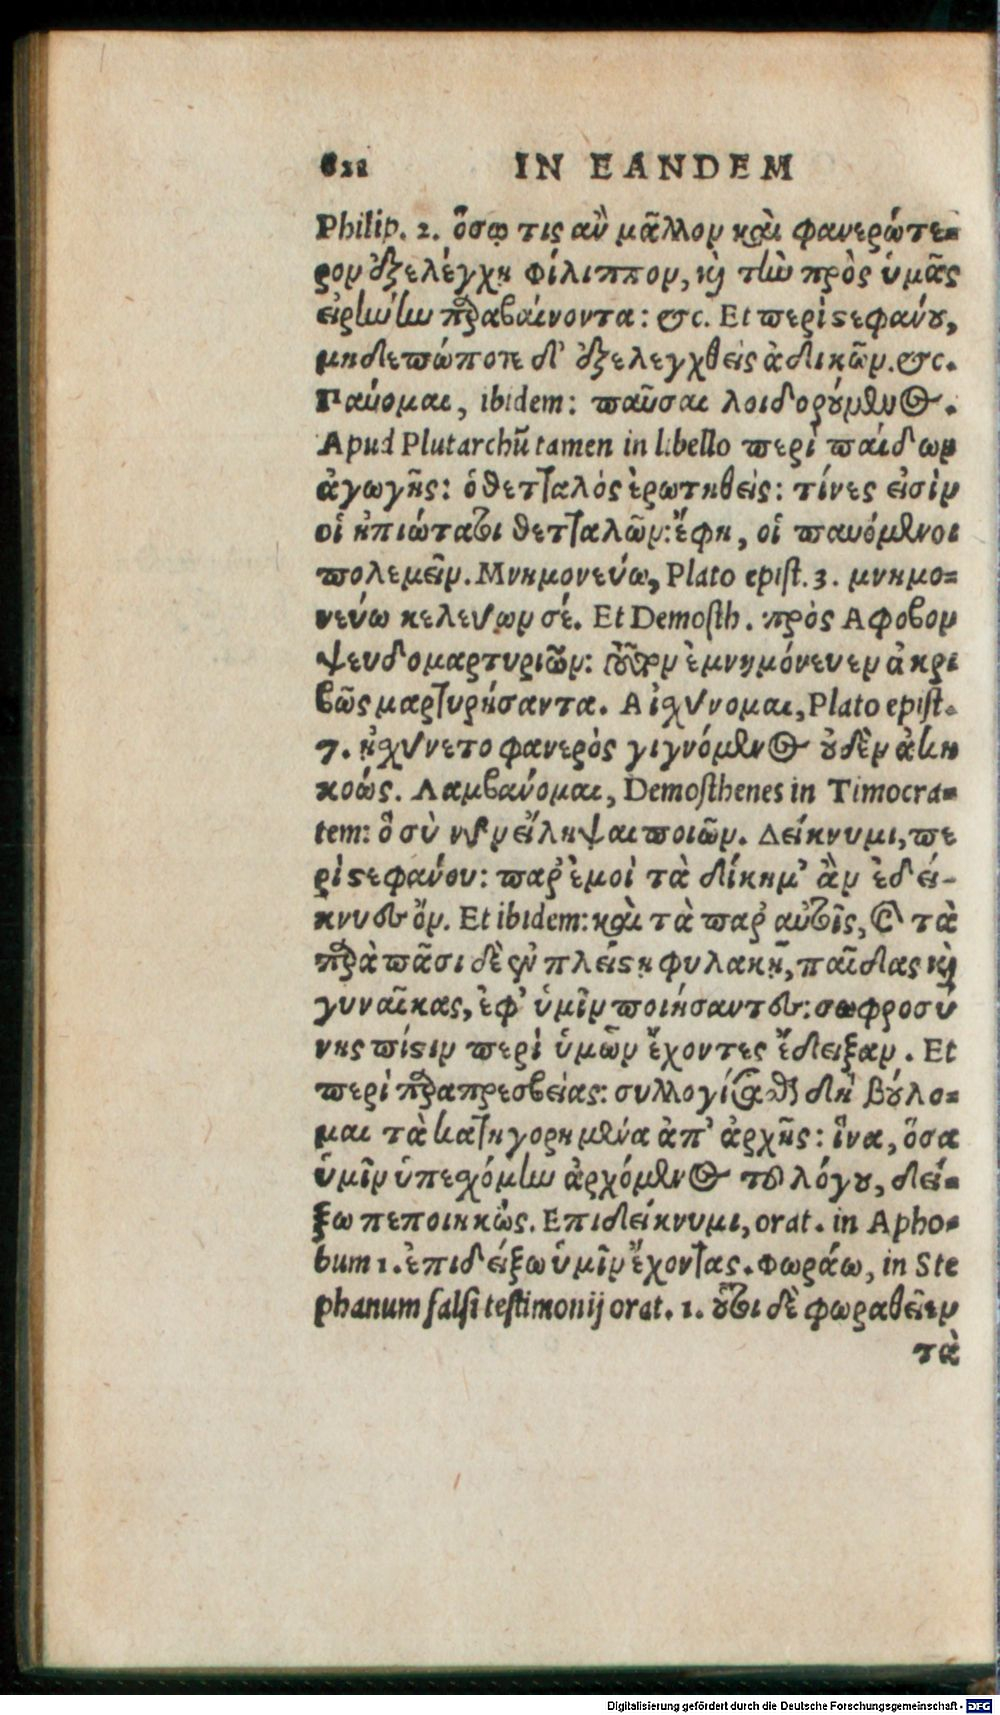 622 IN EANDEM
Philip. 2. ὅσῳ τις ἂν μᾶλλον καὶ φανερώτε-
ρον ἐξελέγχῃ Φίλιππον, καὶ τὴν πρὸς ὑμᾶς
εἰρήνην παραβαίνοντα: &c. Et περὶ στεφάνου,
μηδεπώποτε δ' ἐξελεγχθεὶς ἀδικῶν. &c.
Παύομαι, ibidem: παῦσαι λοιδορούμενος.
Apud Plutarchũ tamen in libello περὶ παίδων
ἀγωγῆς: ὁ θετταλὸς ἐρωτηθείς: τίνες εἰσὶν
οἱ ἠπιώτατοι θετταλῶν: ἔφη, οἱ παυόμενοι
πολεμεῖν. Μνημονεύω, Plato epist. 3. μνημο-
νεύω κελεύων σέ. Et Demosth. πρὸς Αφοβον
ψευδομαρτυριῶν: ἐμνημόνευεν ἀκρι
βῶς μαρτυρήσαντα. Αἰσχύνομαι, Plato epist.
7. ᾐσχύνετο φανερὸς γιγνόμενος οὐδὲν ἀκη
κοώς. Λαμβάνομαι, Demosthenes in Timocra-
tem: ὃ σὺ νῦν εἴληψαι ποιῶν. Δείκνυμι, πε
ρὶ στεφάνου: παρ' ἐμοὶ τὰ δίκημ' ἂν ἐδεί-
κνυτο ὄν. Et ibidem: καὶ τὰ παρ αὐτοῖς, καὶ τὰ
παρὰ πᾶσι δὲ ἐν πλείστῃ φυλακῇ, παῖδας καὶ
γυναῖκας, ἐφ' ὑμῖν ποιήσαντες: σωφροσύ
νης πίστιν περὶ ὑμῶν ἔχοντες ἔδειξαν. Et
περὶ παραπρεσβείας: συλλογίσασθαι δὴ βούλο-
μαι τὰ κατηγορημένα ἀπ' ἀρχῆς: ἵνα, ὅσα
ὑμῖν ὑπεσχόμην ἀρχόμενος τοῦ λόγου, δεί-
ξω πεποιηκώς. Επιδείκνυμι, orat. in Apho-
bum 1. ἐπιδείξω ὑμῖν ἔχοντας. Φωράω, in Ste
phanum falsi testimonij orat. 1. οὗτοι δὲ φωραθεῖεν
τὰ
Digitalisierung gefördert durch die Deutsche Forschungsgemeinschaft - DFG